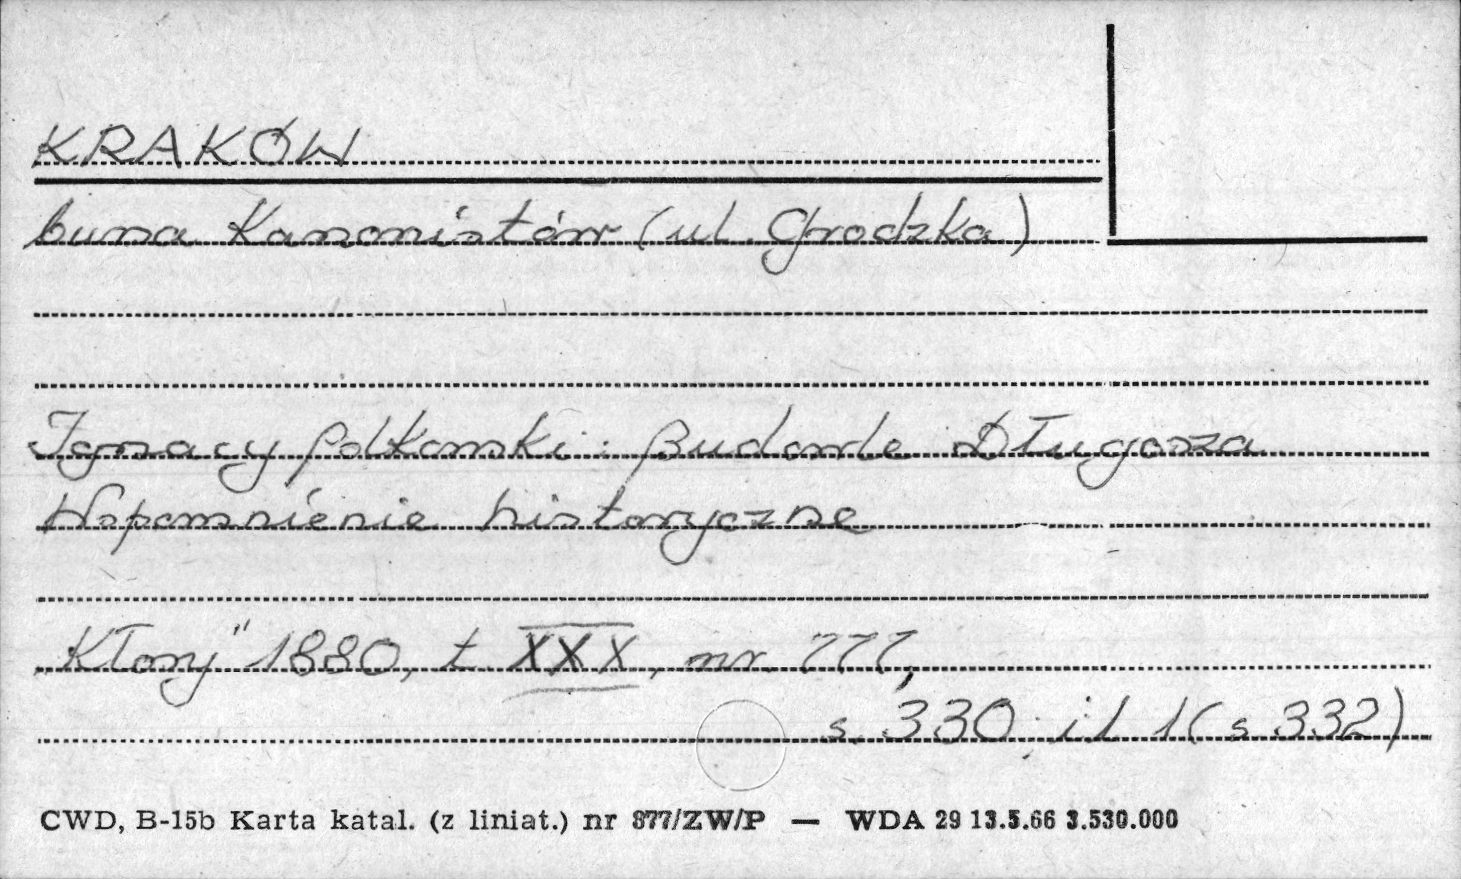 KRAKÓW
bursa Kanonistów (ul. Grodzka)
Ignacy Polkowski: Budowle Długosza
Wspomnienie historyczne
"Kłosy" 1880, t XXX, nr 777,
s. 330 il 1 (s 332)
CWD, B-15b Karta katal. (z liniat.) nr 877/ZW/P — WDA 29 13.5.66 3.530.000